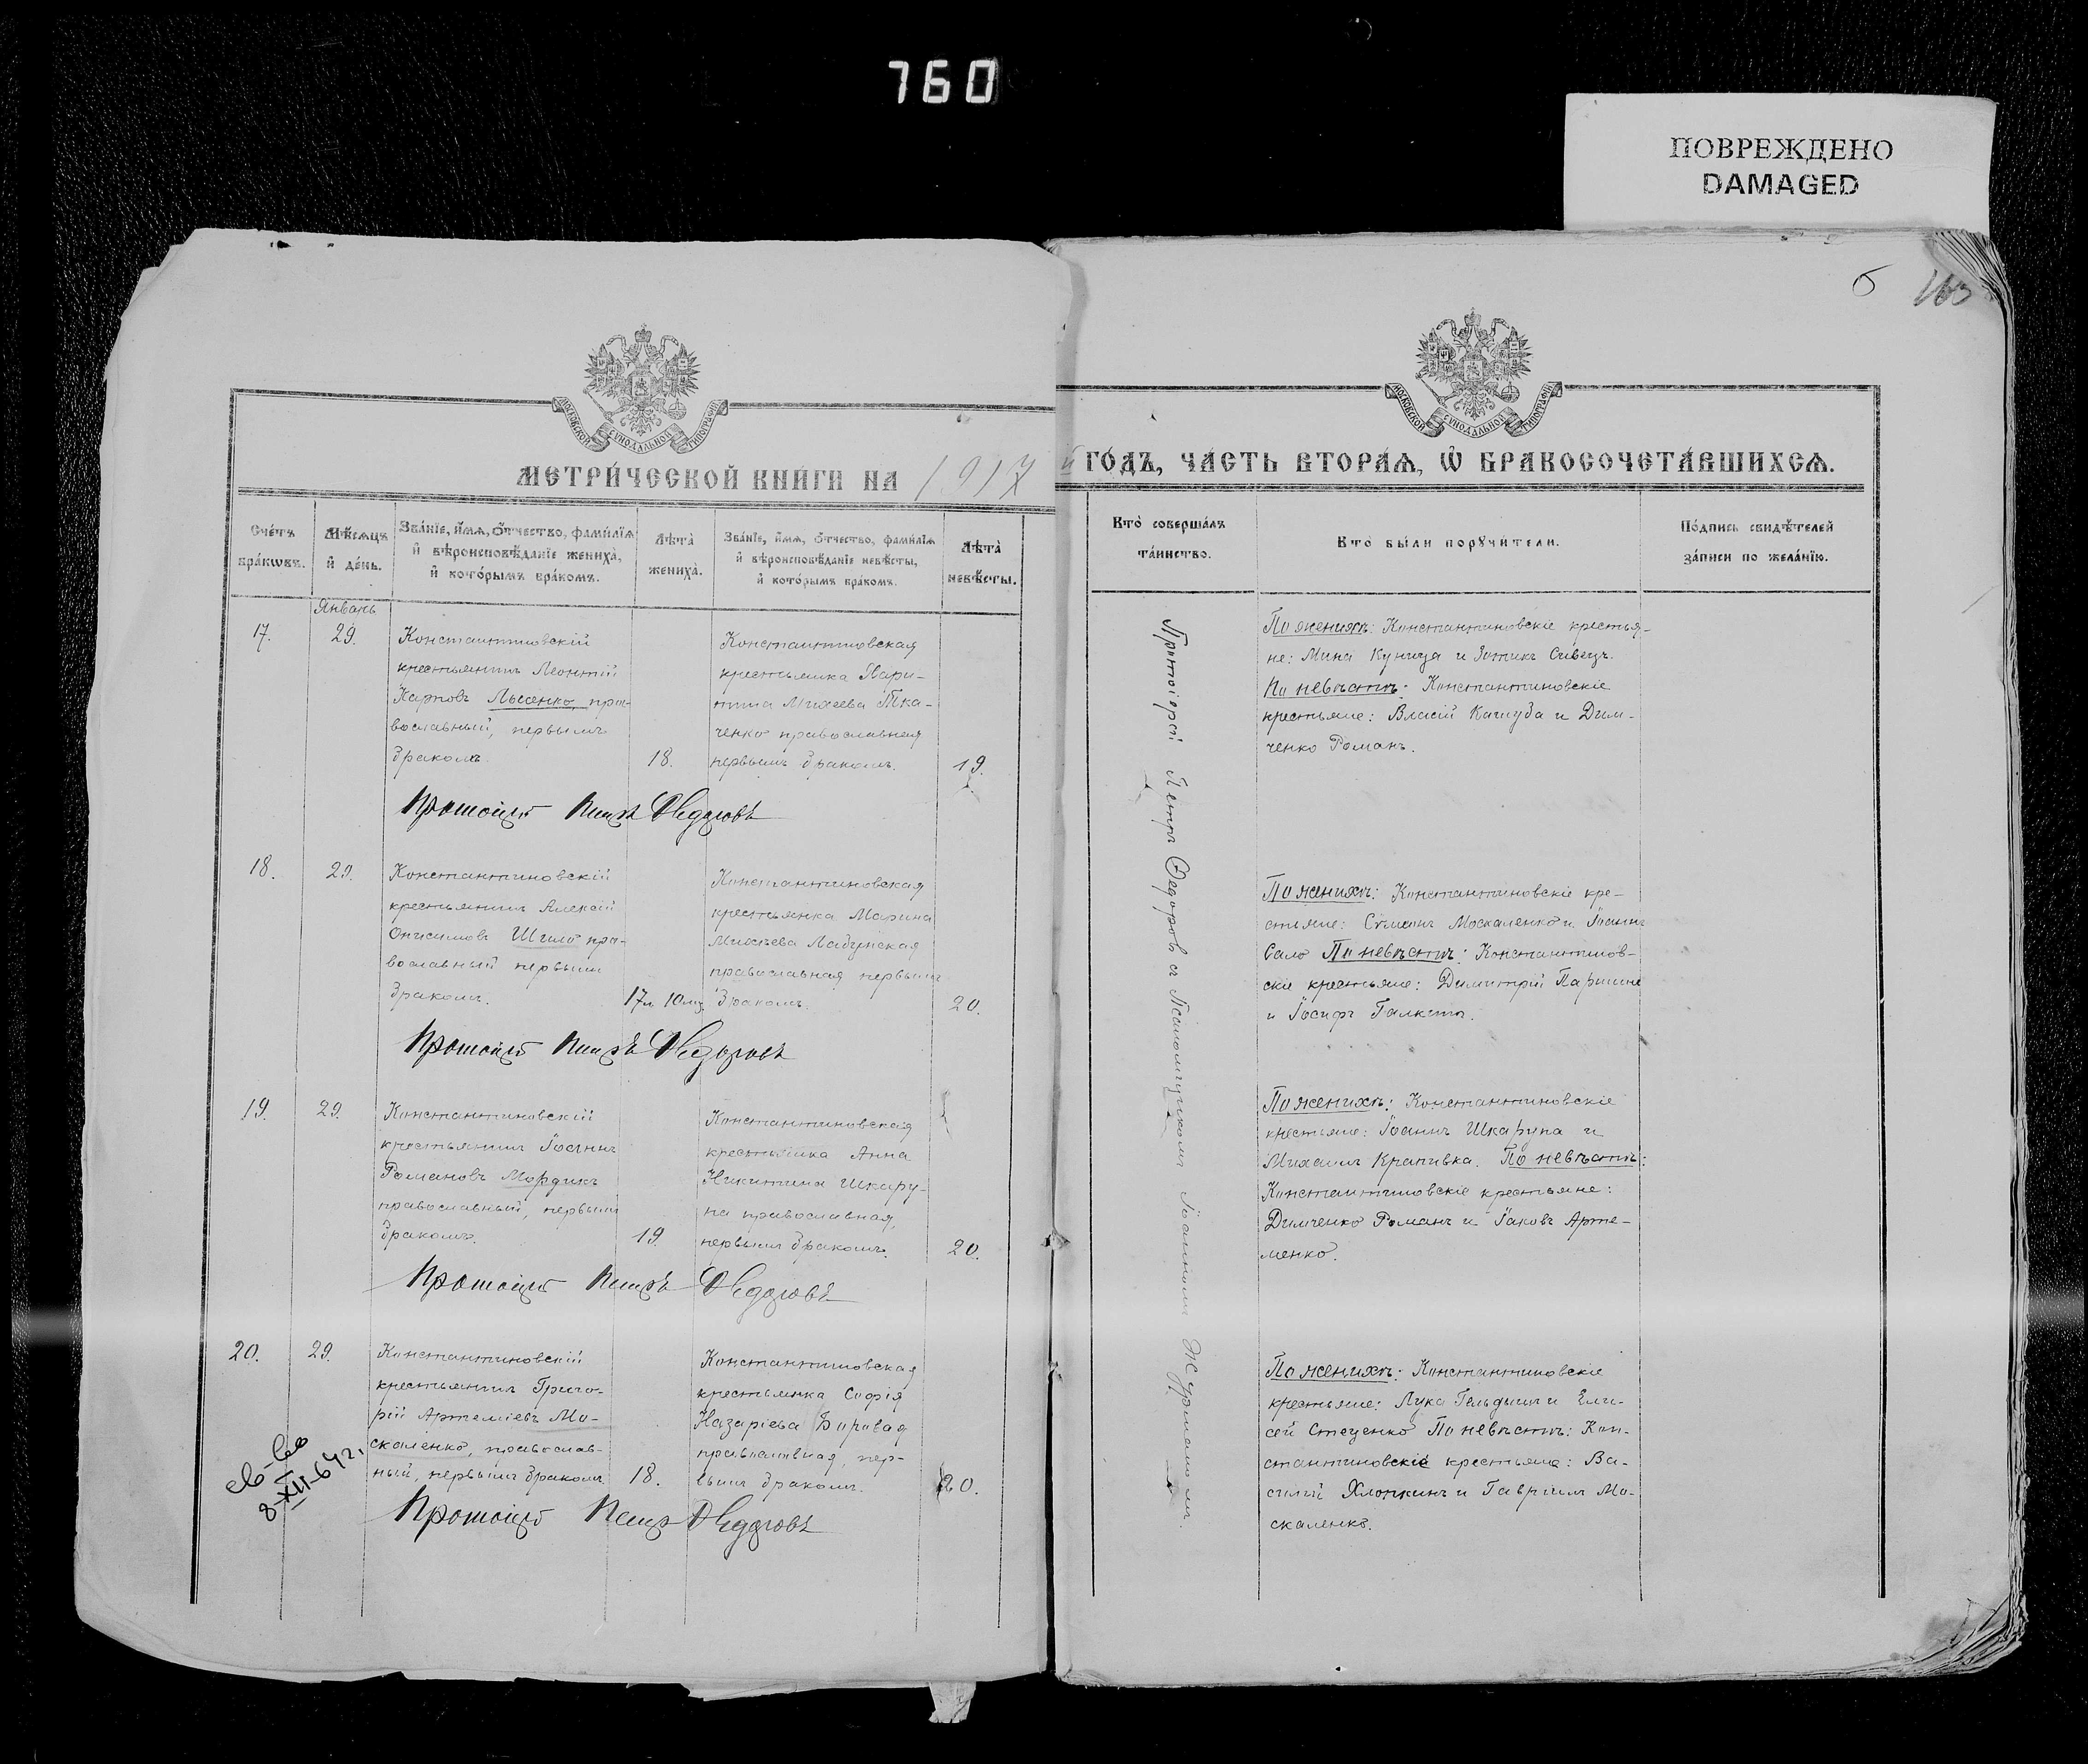 760
ПОВРЕЖДЕНО
DAMAGED
б 163
МОСКОВСКОЙ СѴНОДАЛЬНОЙ ТИПОГРАФІИ
МЕТРИ́ЧЕСКОЙ КНИ́ГИ НА 1917
Сче́тъ бра́кѡвъ.
Мѣ́сѧцъ и҆ де́нь.
Зва́нїе, и҆́мѧ, ѻ҆́тчество, фами́лїѧ
и҆ вѣроисповѣ́данїе жениха̀,
и҆ кото́рымъ бра́комъ.
Лѣ́та жениха̀.
Зва́нїе, и҆́мѧ, ѻ҆́тчество, фами́лїѧ
и҆ вѣроисповѣ́данїе невѣ́сты,
и҆ кото́рымъ бра́комъ.
Лѣ́та невѣ́сты.
Январь
17.
29.
Константиновскій
крестьянинъ Леонтій
Карповъ Лысенко, пра-
вославный, первымъ
бракомъ.
18.
Константиновская
крестьянка Пари-
Михеева Тка-
ченко православная
первымъ бракомъ.
19.
Протоіерей Петръ Ѳедоровъ
18.
29.
Константиновскій
крестьянинъ Алексій
Онисимовъ Шило пра-
вославный первымъ
бракомъ.
17л 10м.
Константиновская
крестьянка Марина
Михеева Лабунская
православная первымъ
бракомъ.
20.
Протоіерей Петръ Ѳедоровъ
19.
29.
Константиновскій
крестьянинъ Іоаннъ
Романовъ Мордикъ
православный, первымъ
бракомъ.
19.
Константиновская
крестьянка Анна
Никитина Шкару-
па православная,
первымъ бракомъ.
20.
Протоіерей Петръ Ѳедоровъ
20.
29.
Константиновскій
крестьянинъ Григо-
рій Артеміевъ Мо-
скаленко, православ-
ный, первымъ бракомъ
18.
Константиновская
крестьянка Софія
Назаріева Боровая
православная, пер-
вымъ бракомъ.
20.
св-во
8-XII-64г.
Протоіерей Петръ Ѳедоровъ
МОСКОВСКОЙ СѴНОДАЛЬНОЙ ТИПОГРАФІИ
й ГО́ДЪ, ЧА́СТЬ ВТОРА́Ѧ, Ѡ҆ БРАКОСОЧЕТА́ВШИХСѦ.
Кто̀ соверша́лъ
та́инство.
Кто̀ бы́ли порꙋчи́тели.
По́дпись свидѣ́телей
за́писи по жела́нїю.
Протоіерей Петръ Ѳедоровъ съ Псаломщикомъ Іоанномъ Журманомъ.
По женихѣ: Константиновскіе крестья-
не: Мина Куница и Зотикъ Сивецъ.
По невѣстѣ: Константиновскіе
крестьяне: Власій Кашуба и Дим-
ченко Романъ.
По женихѣ: Константиновскіе кре-
стьяне: Сѵмеонъ Москаленко и Іоаннъ
Сало По невѣстѣ: Константинов-
скіе крестьяне: Димитрій
и Іосифъ
По женихѣ: Константиновскіе
крестьяне: Іоаннъ Шкарупа и
Михаилъ Крапивка. По невѣстѣ:
Константиновскіе крестьяне:
Димченко Романъ и Іаковъ Арте-
менко.
По женихѣ: Константиновскіе
крестьяне: Лука Гельдышъ и Ели-
сей Стеценко По невѣстѣ: Кон-
стантиновскіе крестьяне: Ва-
силій Хлопкинъ и Гавріилъ Мо-
скаленко.